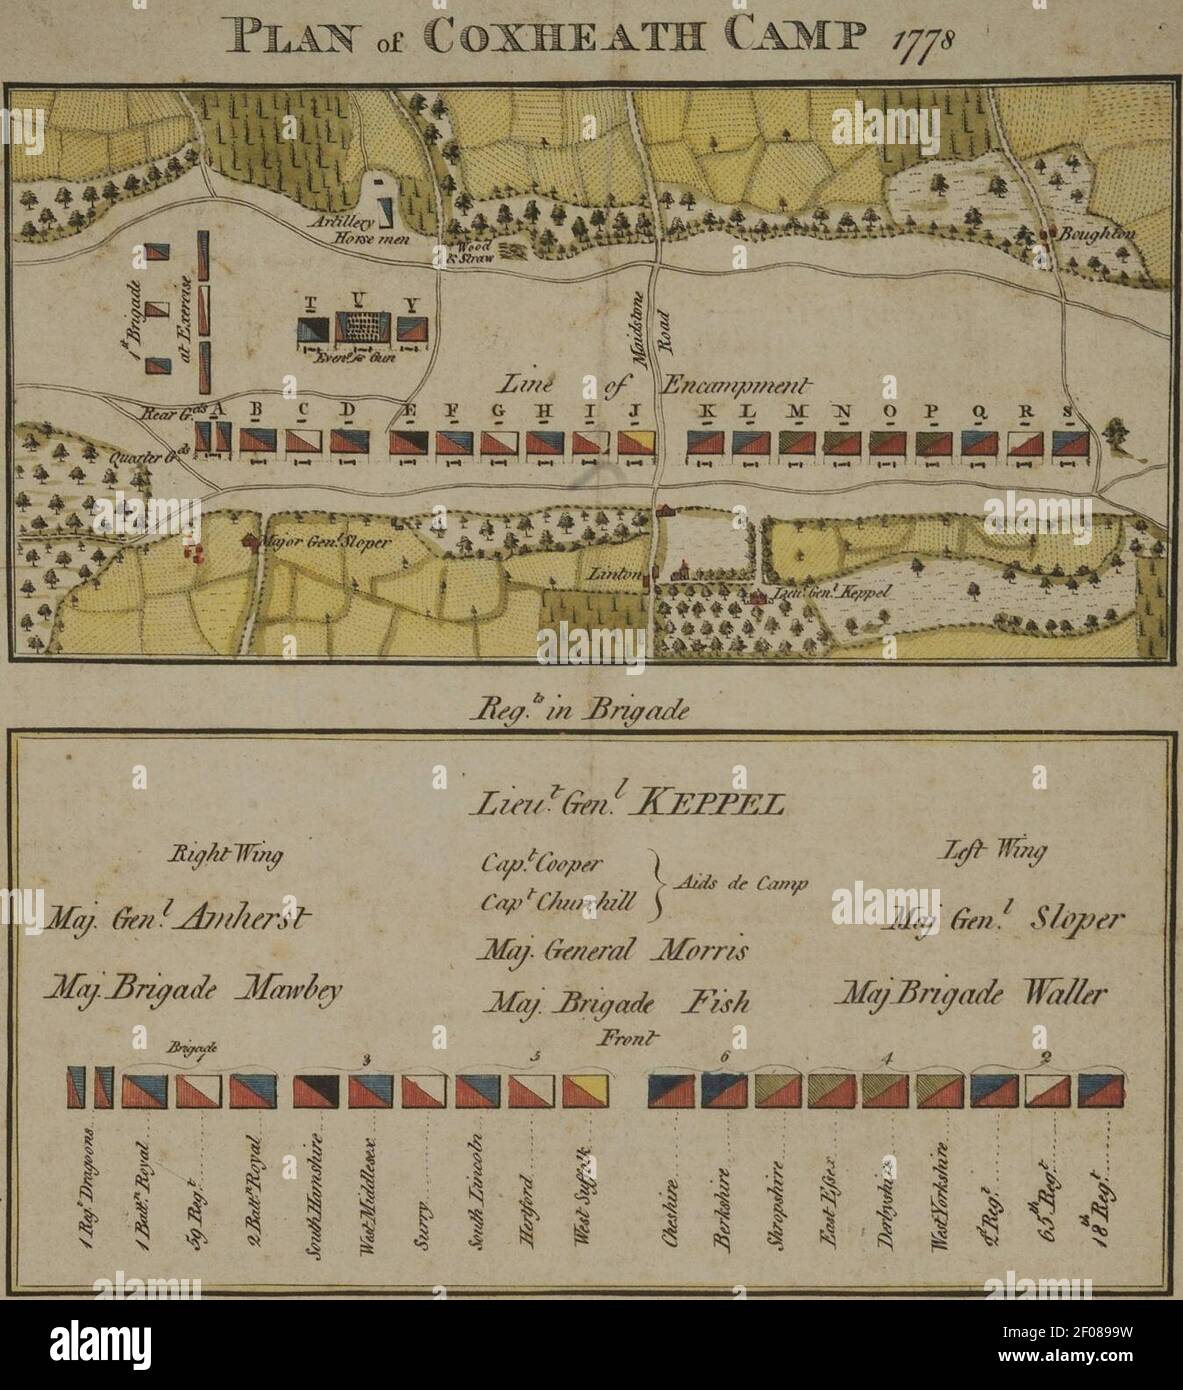 PLAN of COXHEATH CAMP 1778
Artillery
Horse men
Wood
& Straw
Boughton
1st Brigade
at Exercise
T U Y
Maidstone
Road
Line of Encampment
Rear Gds A B C D E F G H I J K L M N O P Q R S
Quarter Gds
Major Genl. Sloper
Linton
Lieut. Genl. Keppel
Reg.ts in Brigade
Lieut. Genl. KEPPEL
Right Wing
Capt. Cooper
Capt Churchill
Aids de Camp
Left Wing
Maj. Genl. Amherst
Maj. General Morris
Maj Genl. Sloper
Maj. Brigade Mawbey
Maj. Brigade Fish
Maj Brigade Waller
Front
Brigade
1 3 5 6 4 2
1 Regt Dragoons
1 Battn Royal
59 Regt
2 Battn Royal
South Hamshire
West Middlesex
Surry
South Lincoln
Hertford
West Suffolk
Cheshire
Berkshire
Shropshire
East Essex
Derbyshire
West Yorkshire
2d Regt
65th Regt
18th Regt
alamy
Image ID: 2F0899W
www.alamy.com